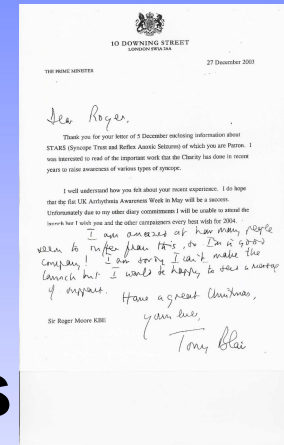 10 DOWNING STREET
LONDON SW1A 2AA
27 December 2003
THE PRIME MINISTER
Dear Roger,
Thank you for your letter of 5 December enclosing information about
STARS (Syncope Trust and Reflex Anoxic Seizures) of which you are Patron. I
was interested to read of the important work that the Charity has done in recent
years to raise awareness of various types of syncope.
I well understand how you felt about your recent experience. I do hope
that the fist UK Arrhythmia Awareness Week in May will be a success.
Unfortunately due to my other diary commitments I will be unable to attend the
launch but I wish you and the other campaigners every best wish for 2004.
I am amazed at how many people
seem to suffer from this, so I'm in good
company! I am sorry I can't make the
launch but I would be happy to send a message
of support. Have a great Christmas,
yours ever,
Sir Roger Moore KBE
Tony Blair
s